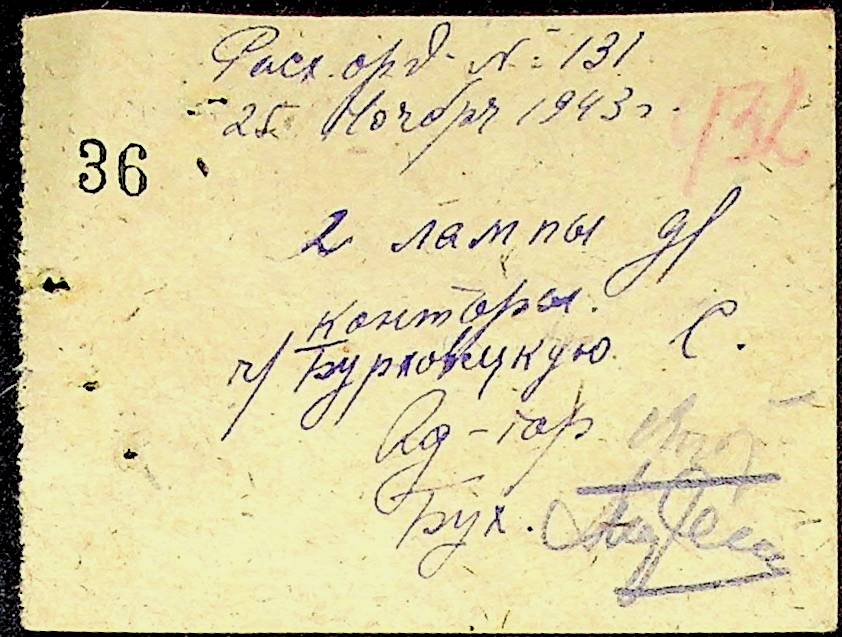 Расх. орд. №: 131
25 Ноября 1943 г.
432
36
2 лампы д/
конторы.
ч/ Бурковецкую С.
Ад-тор
Бух.